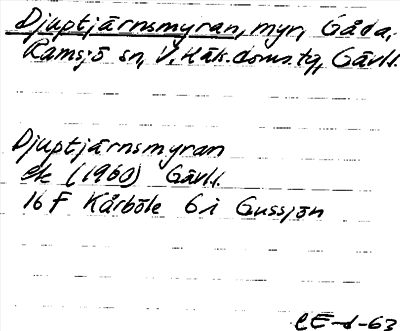 Djuptjärnsmyran, myr, Gåda,
Ramsjö sn, V. Häls. doms.tg, Gävl.l.
Djuptjärnsmyran
ek (1960) Gävl.l.
16 F Kårböle 6 i Gussjön
CE-d-63